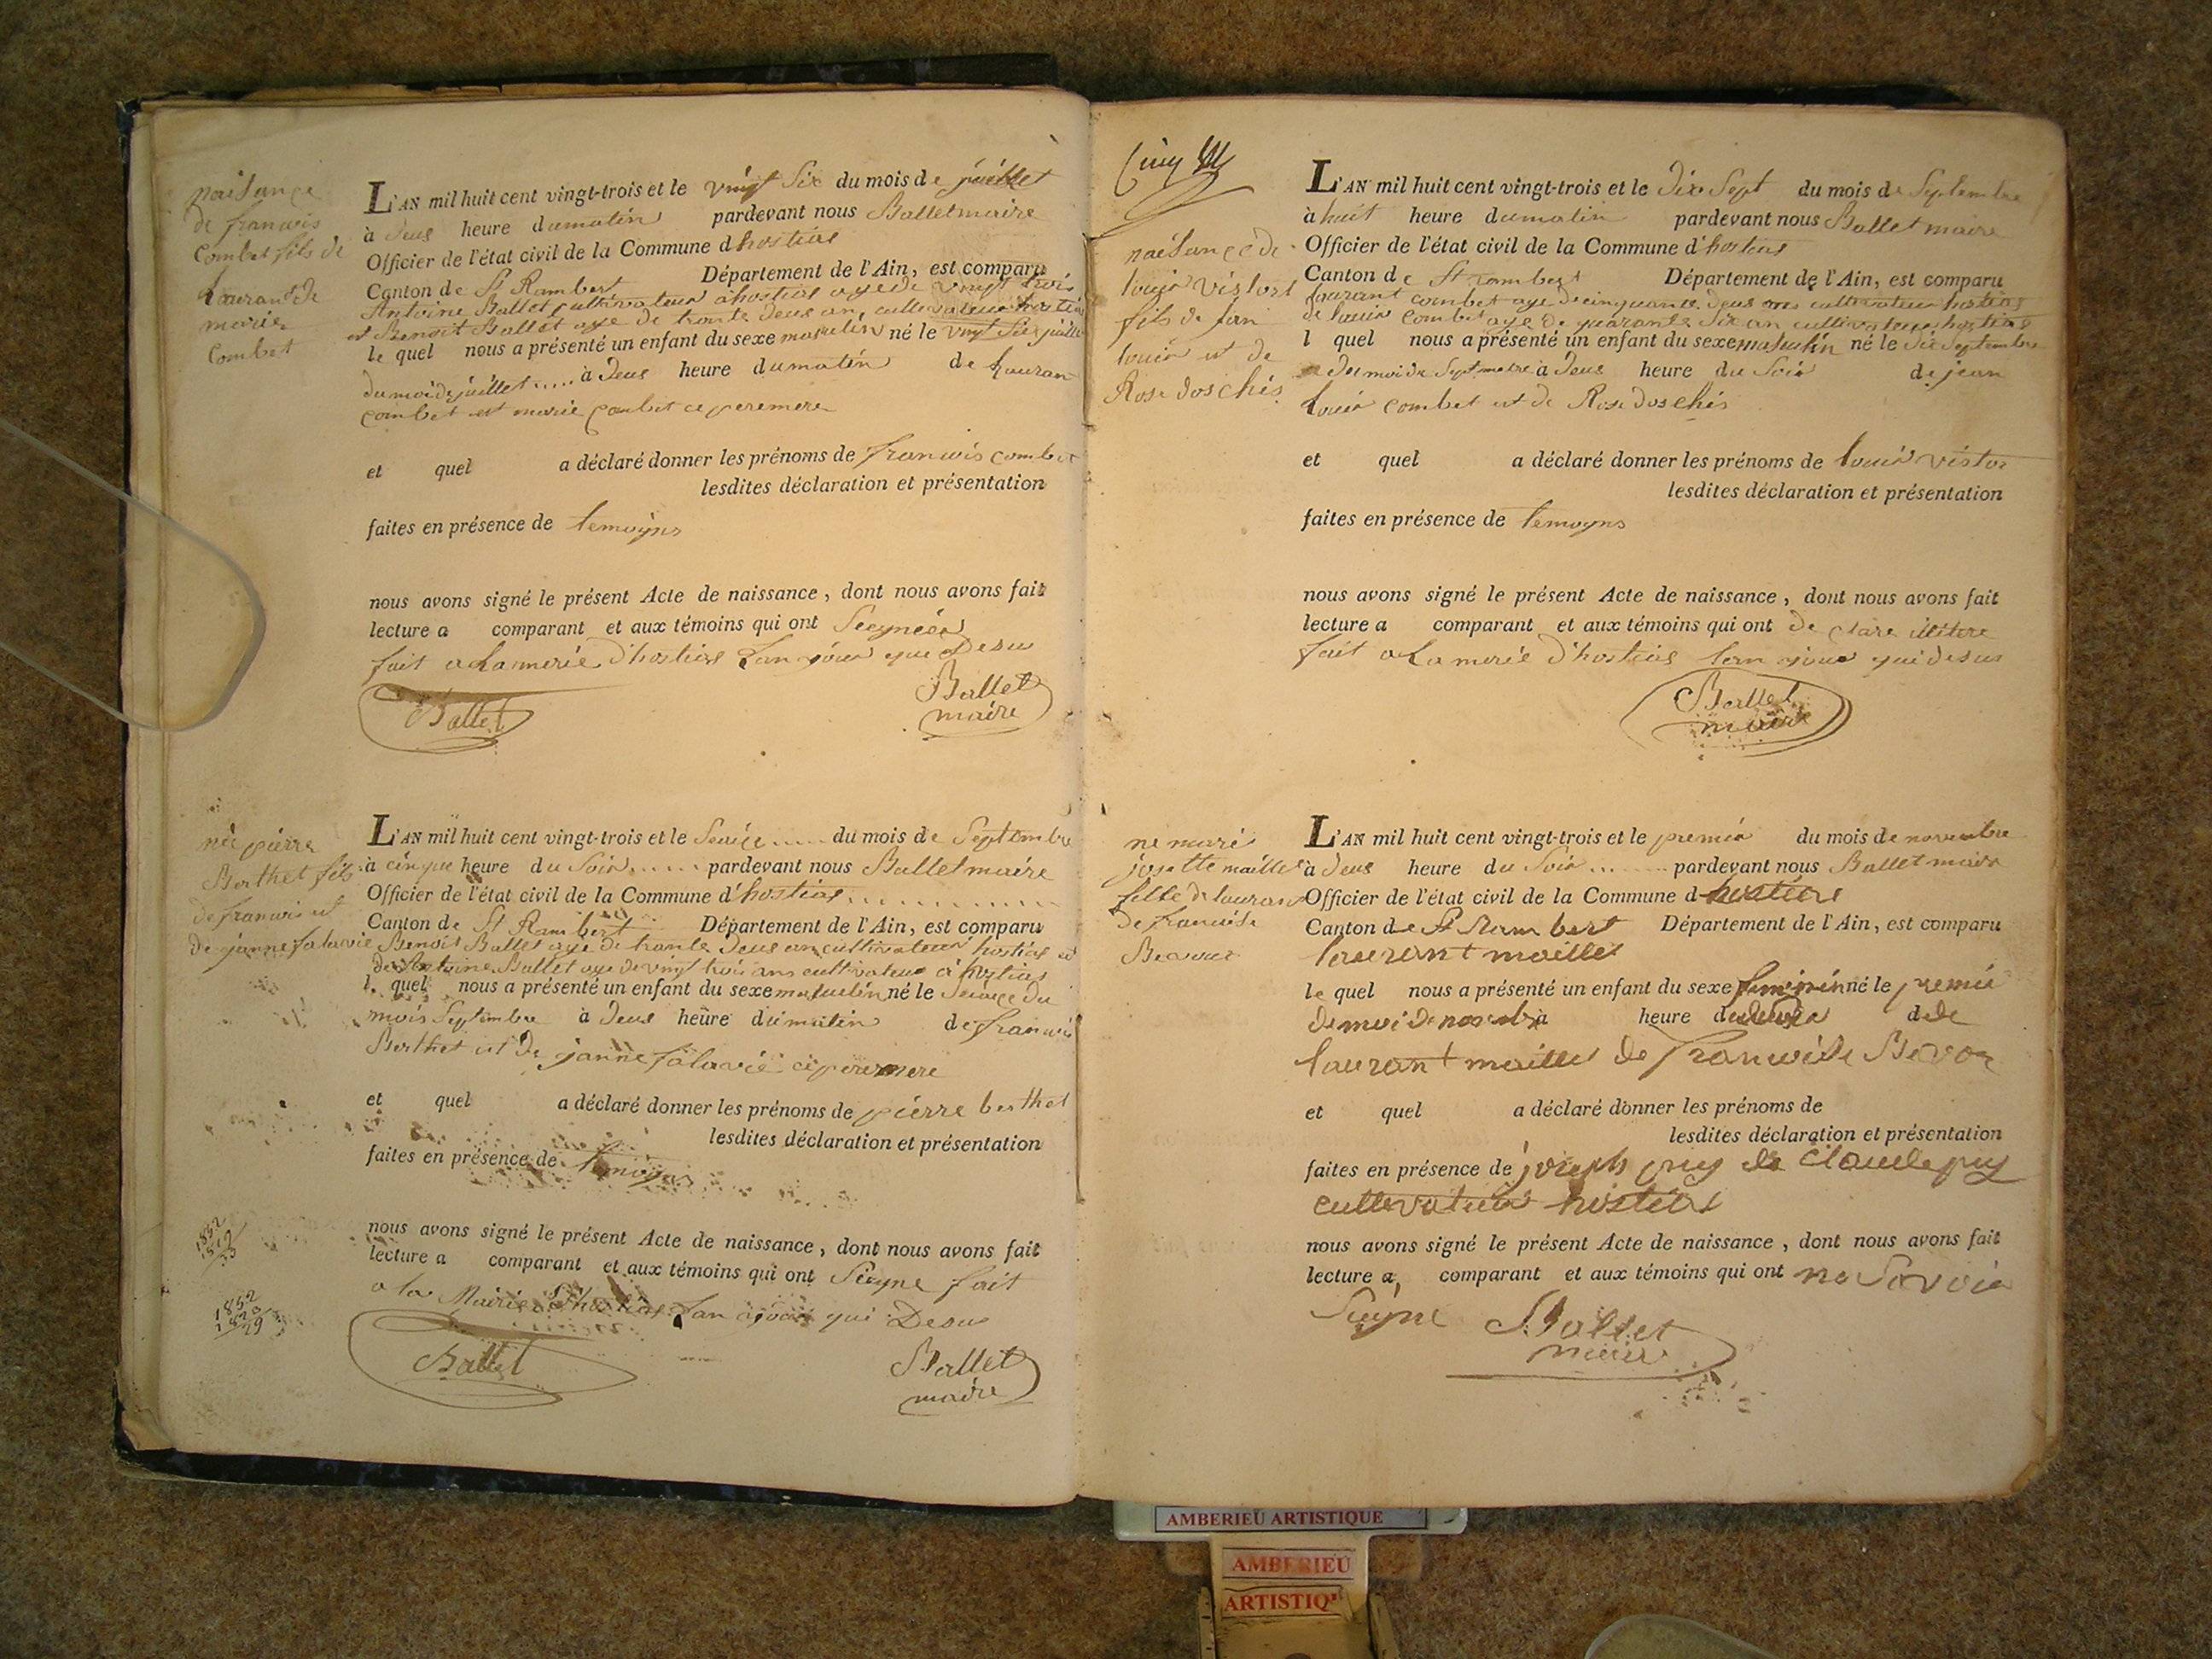 naisance
de franwis
Combet fils de
Lauran de
marie
Combet
L'AN mil huit cent vingt-trois et le vingt Six du mois de juillet
à deus heure du matin pardevant nous Ballet maire
Officier de l'état civil de la Commune d'hostias
Canton de St Rambert Département de l'Ain, est comparu
Antoine Ballet cultivateur a hostias age de vingt trois
et Benoit Ballet age de trante deus an, cultivateur hostias
le quel nous a présenté un enfant du sexe masculin né le vingt Six juillet
du moi de juillet ..... à deus heure du matin de Lauran
combet et marie combet ce pere mere
et quel a déclaré donner les prénoms de franwis combet
lesdites déclaration et présentation
faites en présence de temoyns
nous avons signé le présent Acte de naissance, dont nous avons fait
lecture a comparant et aux témoins qui ont
fait a La merie d'hostias Lan jour que Desu
Ballet
Ballet
maire
né pierre
Berthet fils
de franwis et
de janne falavie
L'AN mil huit cent vingt-trois et le Seaize .... du mois de Septembre
à cinque heure du Soir ..... pardevant nous Ballet maire
Officier de l'état civil de la Commune d'hostias ............
Canton de St Rambert Département de l'Ain, est comparu
Benoit Ballet age de trante deus an cultivateur hostias et
de Antoine Ballet age de vingt trois ans cultivateur a hostias
l. quel nous a présenté un enfant du sexe masculin né le Seaize du
mois Septembre à deus heure du matin de franwis
Berthet et de janne falavie ce pere mere
et quel a déclaré donner les prénoms de pierre berthet
lesdites déclaration et présentation
faites en présence de temoyns
nous avons signé le présent Acte de naissance, dont nous avons fait
lecture a comparant et aux témoins qui ont Sieyne fait
a la Mairie d'hostias Lan ajour qui Desu
1852
1829
Ballet
Ballet
maire
Cinq
naesance de
louis victort
fils de jan
louis et de
Rose doschés
L'AN mil huit cent vingt-trois et le dix Sept du mois de Septembre
à huit heure du matin pardevant nous Ballet maire
Officier de l'état civil de la Commune d'hostias
Canton de St rambert Département de l'Ain, est comparu
laurant combet age de cinquante deus ans cultivateur hostias
de louis combet age de quarante Six an cultivateur hostias
l quel nous a présenté un enfant du sexe masculin né le dix Septembre
du moi de Septembre à deus heure du Soir de jean
louis combet et de Rose doschés
et quel a déclaré donner les prénoms de louis victor
lesdites déclaration et présentation
faites en présence de temoyns
nous avons signé le présent Acte de naissance, dont nous avons fait
lecture a comparant et aux témoins qui ont de clare ilitere
fait a La merie d'hostias lan ajour qui desus
Ballet
maire
ne marie
josette maillet
fille de lauran
de franwise
Bevour
L'AN mil huit cent vingt-trois et le premia du mois de novembre
à deus heure du Soir ....... pardevant nous Ballet maire
Officier de l'état civil de la Commune d hostias
Canton de St Rambert Département de l'Ain, est comparu
laurant maillet
le quel nous a présenté un enfant du sexe feminin né le premie
de moi de novembre à heure du de
laurant maillet de franwise Bevor
et quel a déclaré donner les prénoms de
lesdites déclaration et présentation
faites en présence de joseph puy de Claude puy
cultivateur hostias
nous avons signé le présent Acte de naissance, dont nous avons fait
lecture a, comparant et aux témoins qui ont ne Savoir
Sieyne Ballet
maire
AMBERIEU ARTISTIQUE
AMBERIEU
ARTISTIQ